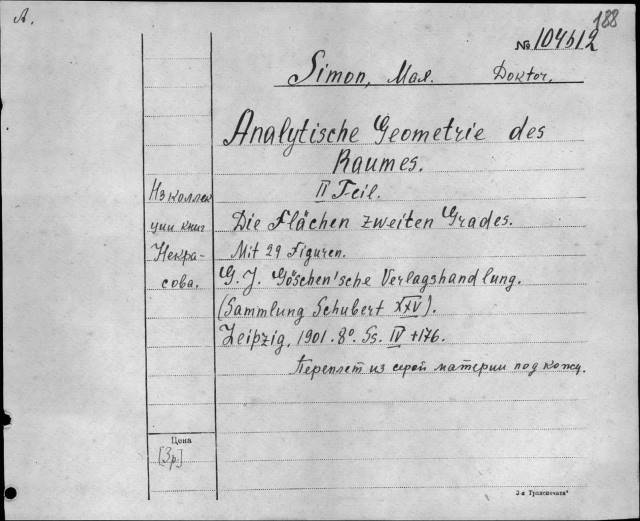 A.
188
№ 104612
Simon, Max. Doktor.
Analytische Geometrie des
Raumes.
II Teil.
Die Flächen zweiten Grades.
Mit 29 Figuren.
G. J. Göschen'sche Verlagshandlung.
(Sammlung Schubert XXV).
Leipzig, 1901. 8º. Ss. IV + 176.
Переплет из серой материи под кожу.
Из коллек
ции книг
Некра-
сова.
Цена
[3р]
3-я Транспечать"